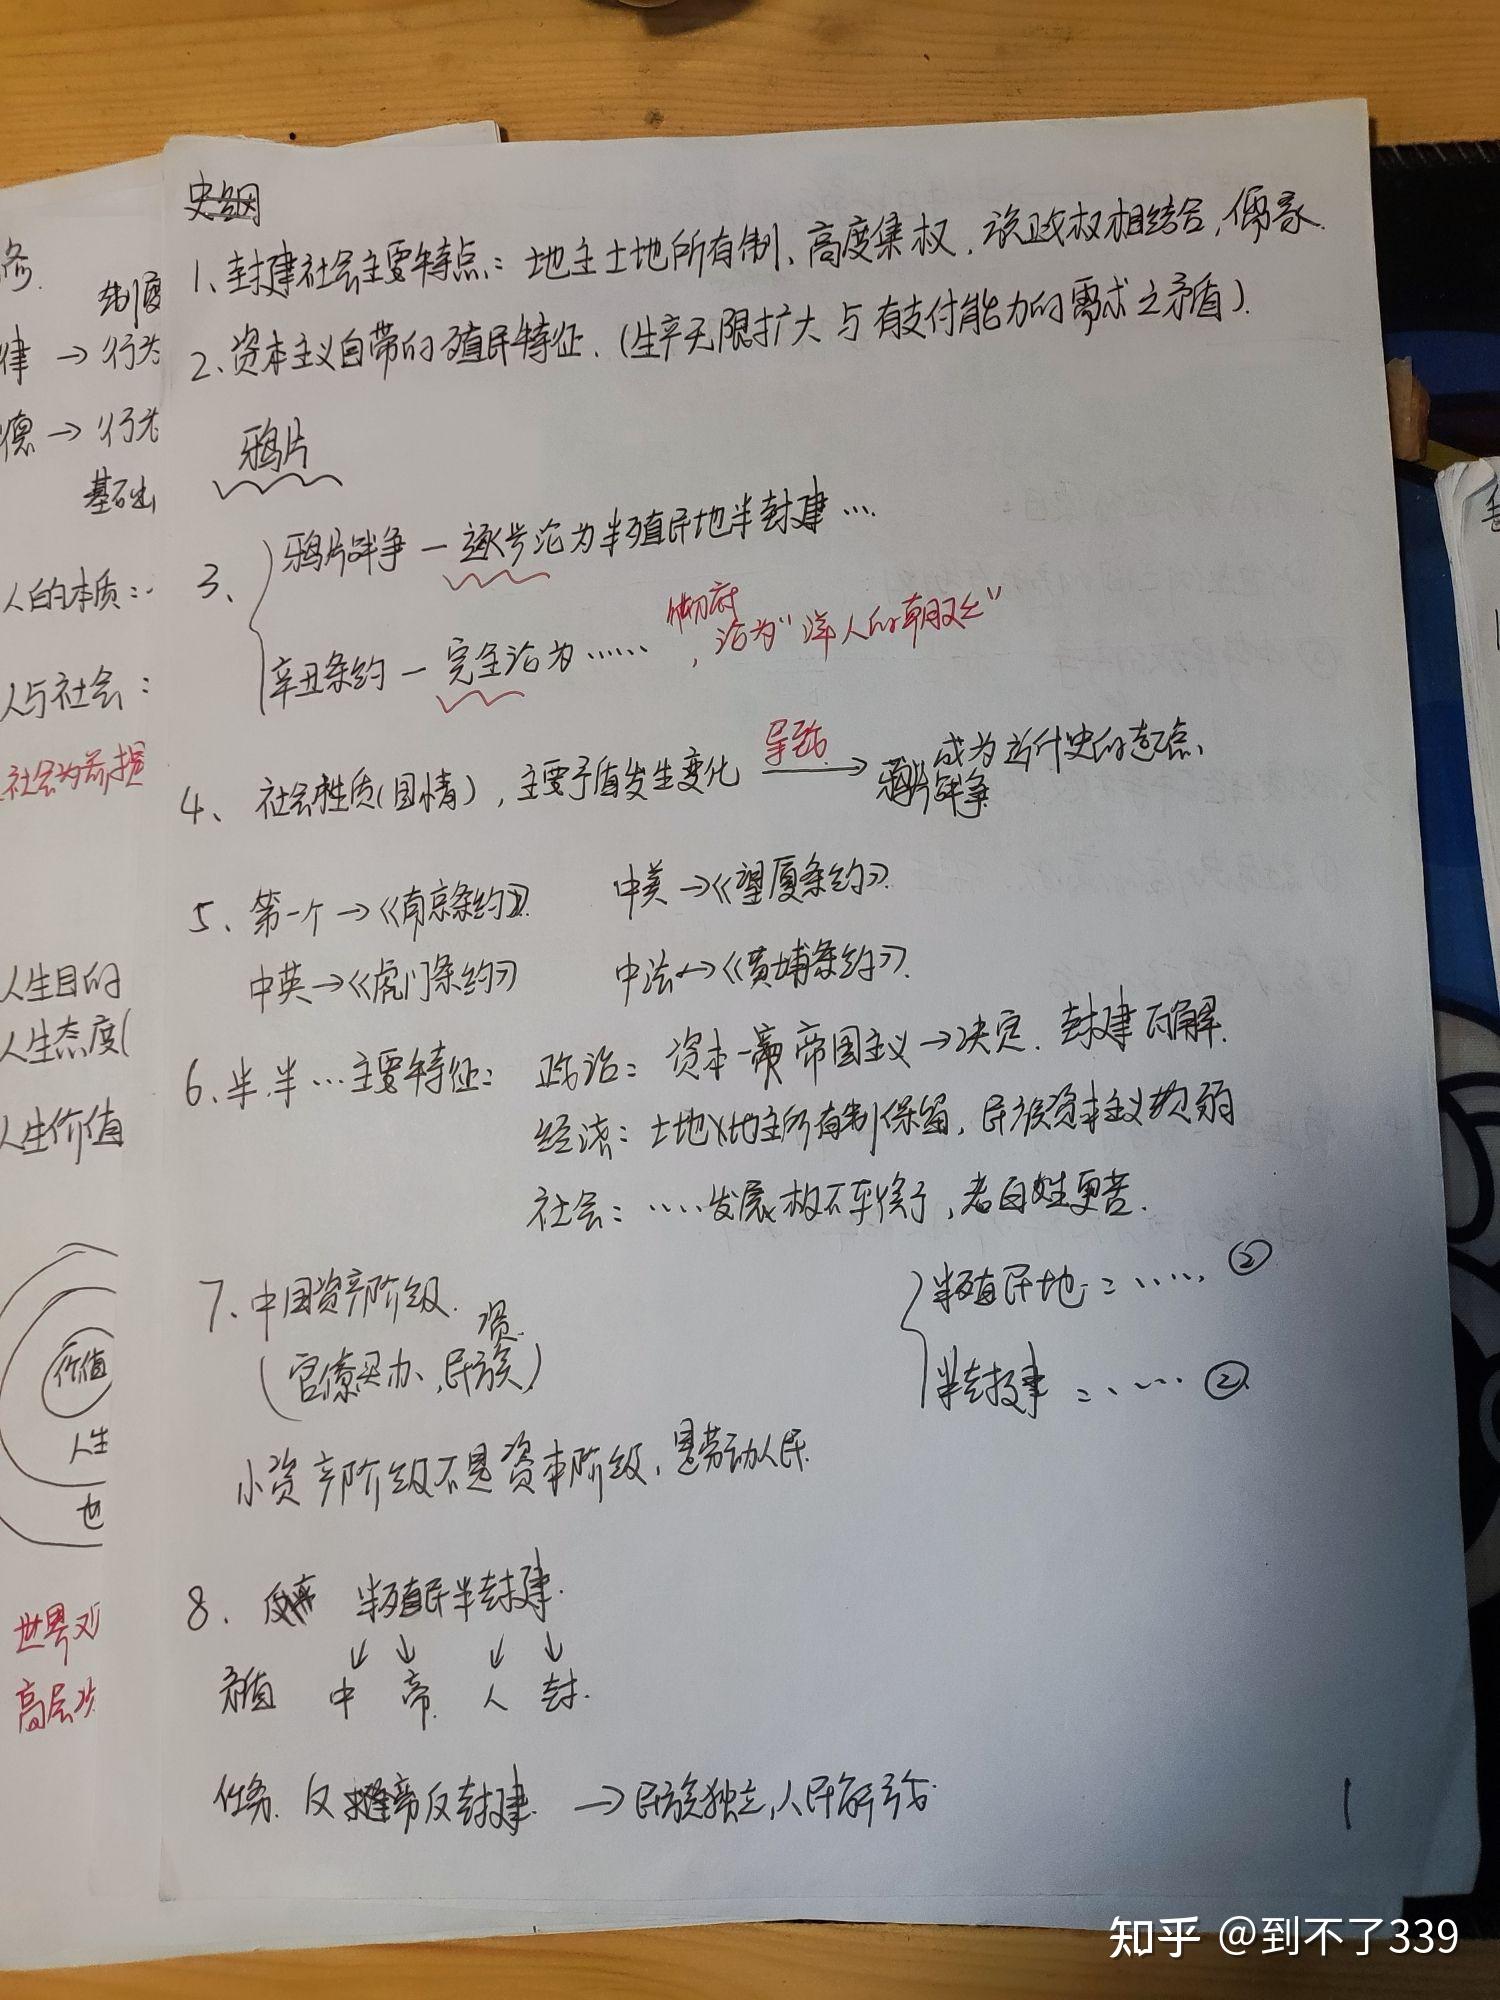 史纲
1、封建社会主要特点：地主土地所有制、高度集权、族政权相结合，儒家.
2、资本主义自带的殖民特征.（生产无限扩大与有支付能力的需求之矛盾）.
鸦片
3、
鸦片战争 — 逐步沦为半殖民地半封建…
辛丑条约 — 完全沦为……，沦为“洋人的朝廷”
4、社会性质（国情），主要矛盾发生变化 导致→ 鸦片战争成为近代史的起点、
5、第一个→《南京条约》 中英→《虎门条约》
中美→《望厦条约》. 中法→《黄埔条约》.
6、半.半…主要特征： 政治：资本—帝国主义→决定. 封建瓦解.
经济：土地地主所有制保留，民族资本主义软弱
社会：……发展极不平衡，老百姓更苦.
7、中国资产阶级.
（官僚买办、民族资.）
小资产阶级不是资本阶级，是劳动人民.
半殖民地：…… ②
半封建：…… ②
8. 半殖民半封建.
↓ ↓ ↓ ↓
矛盾 中 帝 人 封.
任务. 反帝反封建. → 民族独立，人民解放.
1
修.
制度
律 → 行为
德 → 行为
基础
人的本质：
人与社会：
社会为前提
人生目的
人生态度（
人生价值
价值
人生
世界观
高层次
知乎 @到不了339